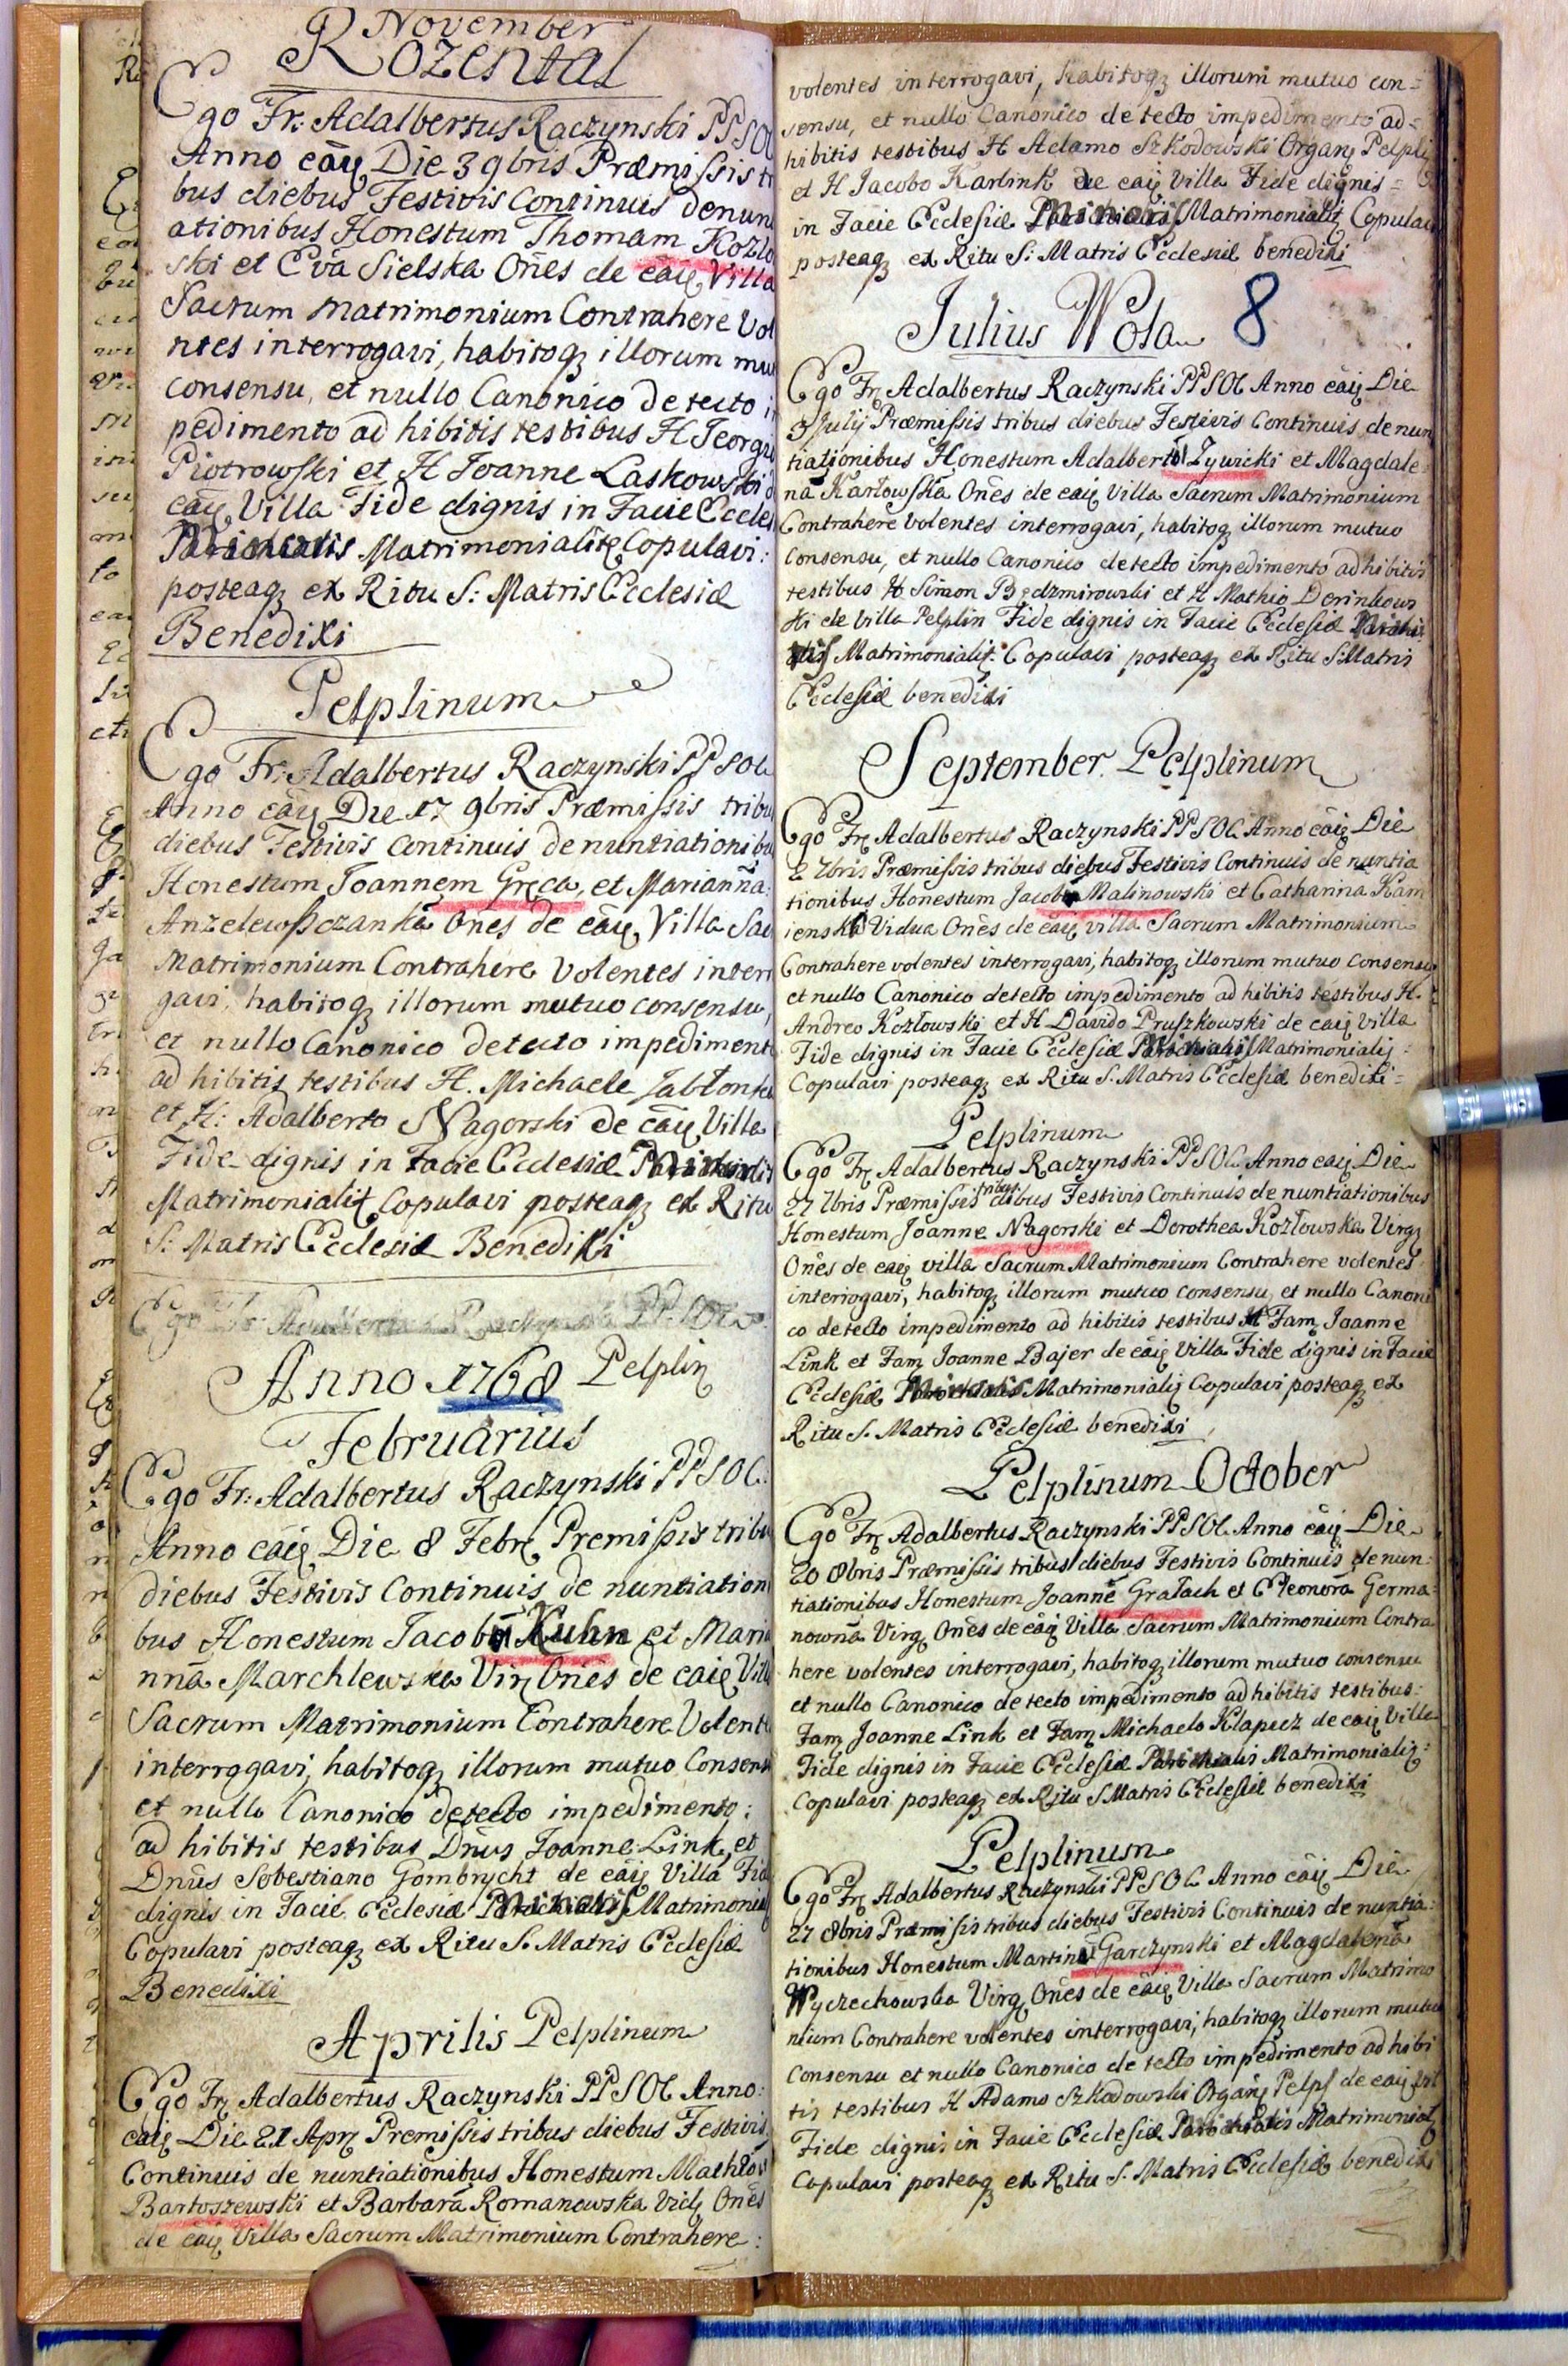 November
Rozental
Ego Fr: Adalbertus Raczynski PPSOC
Anno eāq Die 3 9bris Præmissis tr
bus diebus Festivis Continuis denun
ationibus Honestum Thomam Kozlo
ski et Eva Sielska Onēs de eāq Villa
Sacrum Matrimonium Contrahere Vol
ntes interrogavi, habitoq illorum mu
consensu, et nullo Canonico detecto i
pedimento ad hibitis testibus H Georgi
Piotrowski et H Joanne Laskowski d
eāq Villa Fide dignis in Facie Eccles
Parochialis Matrimonialit Copulavi:
posteaq ex Ritu S: Matris Ecclesiæ
Benedixi
Pelplinum
Ego Fr: Adalbertus Raczynski PPSOC
Anno eāq Die 17 9bris Præmissis tribu
diebus Festivis Continuis denuntiationibu
Honestum Joannem Gręca, et Marianna:
Anzelewszczanka Onēs de eāq Villa Sac
Matrimonium Contrahere Volentes inter
gavi, habitoq illorum mutuo consensu,
et nullo Canonico detecto impediment
ad hibitis testibus H. Michaele Jabłonk
et H: Adalberto Nagorski de eāq Villa
Fide dignis in Facie Ecclesiæ Parochialis
Matrimonialit Copulavi posteaq ex Ritu
S: Matris Ecclesiæ Benedixi
Ego Fr: Adalbertus Raczynski PPSOC
Anno 1768 Pelplin
Februarius
Ego Fr: Adalbertus Raczynski PPSOC.
Anno eāq Die 8 Febr Premissis tribu
diebus Festivis Continuis de nuntiation
bus Honestum Jacobū Kuhn et Maria
nnā Marchlewska Vir Onēs de eāq Vill
Sacrum Matrimonium Contrahere Volent
interrogavi, habitoq illorum mutuo Consens
et nullo Canonico detecto impedimento:
ad hibitis testibus Dnūs Joanne Link, et
Dnūs Sebestiano Gombrycht de eāq Villa Fid
dignis in Facie Ecclesiæ Parochialis Matrimonia
Copulavi posteaq ex Ritu S. Matris Ecclesiæ
Benedixi
Aprilis Pelplinum
Ego Fr Adalbertus Raczynski PPSOC Anno:
eāq Die 21 Apr Premissis tribus diebus Festivis
Continuis de nuntiationibus Honestum Mathæū
Bartoszewski et Barbarā Romanowska Vid Onēs
de eāq Villa Sacrum Matrimonium Contrahere:
volentes interrogavi, habitoq illorum mutuo con=
sensu, et nullo Canonico detecto impedimento ad=
hibitis testibus H Adamo Szkodowski Organ Pelpli
et H Jacobo Karlink de eāq Villa Fide dignis=
in Facie Ecclesiæ Parochialis Matrimonialit Copulav
posteaq ex Ritu S: Matris Ecclesiæ benedixi
Julius Wola 8
Ego Fr Adalbertus Raczynski PPSOC Anno eāq Die
3 Julij Præmissis tribus diebus Festivis Continuis denun
tiationibus Honestum Adalbertū Zywicki et Magdale
nā Karłowska Onēs de eāq Villa Sacrum Matrimonium
Contrahere volentes interrogavi, habitoq illorum mutuo
consensu, et nullo Canonico detecto impedimento adhibitis
testibus H Simon Będzmirowski et H Mathio Derinkows
ki de Villa Pelplin Fide dignis in Facie Ecclesiæ Parochi
alis Matrimonialit. Copulavi posteaq ex Ritu S Matris
Ecclesiæ benedixi
September. Pelplinum
Ego Fr Adalbertus Raczynski PPSOC Anno eāq Die
2 7bris Præmissis tribus diebus Festivis Continuis de nuntia
tionibus Honestum Jacobū Malinowski et Catharina Kam
ienska Vidua Onēs de eāq villa Sacrum Matrimonium
Contrahere volentes interrogavi, habitoq illorum mutuo consensu
et nullo Canonico detecto impedimento ad hibitis testibus H.
Andreo Kozłowski et H Davido Pruszkowski de eāq Villa
Fide dignis in Facie Ecclesiæ Parochialis Matrimonialiq:
Copulavi posteaq ex Ritu S. Matris Ecclesiæ benedixi=
Pelplinum
Ego Fr Adalbertus Raczynski PPSOC Anno eāq Die
27 7bris Præmissis tribus diebus Festivis Continuis de nuntiationibus
Honestum Joanne Nagorski et Dorothea Kozłowska Virg
Onēs de eāq villa Sacrum Matrimonium Contrahere volentes
interrogavi, habitoq illorum mutuo consensu, et nullo Canoni
co detecto impedimento ad hibitis testibus H Fam Joanne
Link et Fam Joanne Bajer de eāq Villa Fide dignis in Facie
Ecclesiæ Parochialis Matrimonialiq Copulavi posteaq ex
Ritu S. Matris Ecclesiæ benedixi
Pelplinum October
Ego Fr Adalbertus Raczynski PPSOC Anno eāq Die
20 8bris Præmissis tribus diebus Festivis Continuis denun:
tiationibus Honestum Joannē Grałach et Eleonora Germa
nowna Virg Onēs de eāq Villa Sacrum Matrimonium Contra
here volentes interrogavi, habitoq illorum mutuo consensu
et nullo Canonico detecto impedimento adhibitis testibus:
Fam Joanne Link et Fam Michaelo Klapucz de eāq Villa
Fide dignis in Facie Ecclesiæ Parochialis Matrimonialiq:
Copulavi posteaq ex Ritu S Matris Ecclesiæ benedixi
Pelplinum
Ego Fr Adalbertus Raczynski PPSOC Anno eāq Die
27 8bris Præmissis tribus diebus Festivis Continuis de nuntia:
tionibus Honestum Martinū Garczynski et Magdalenā
Wyczechowska Virg Onēs de eāq Villa Sacrum Matrimo
nium Contrahere volentes interrogavi, habitoq illorum mutuo
Consensu et nullo Canonico detecto impedimento ad hibi
tis testibus H Adamo Szkodowski Organ Pelpl de eāq vil
Fide dignis in Facie Ecclesiæ Parochialis Matrimonialiq
Copulavi posteaq ex Ritu S. Matris Ecclesiæ benedixi